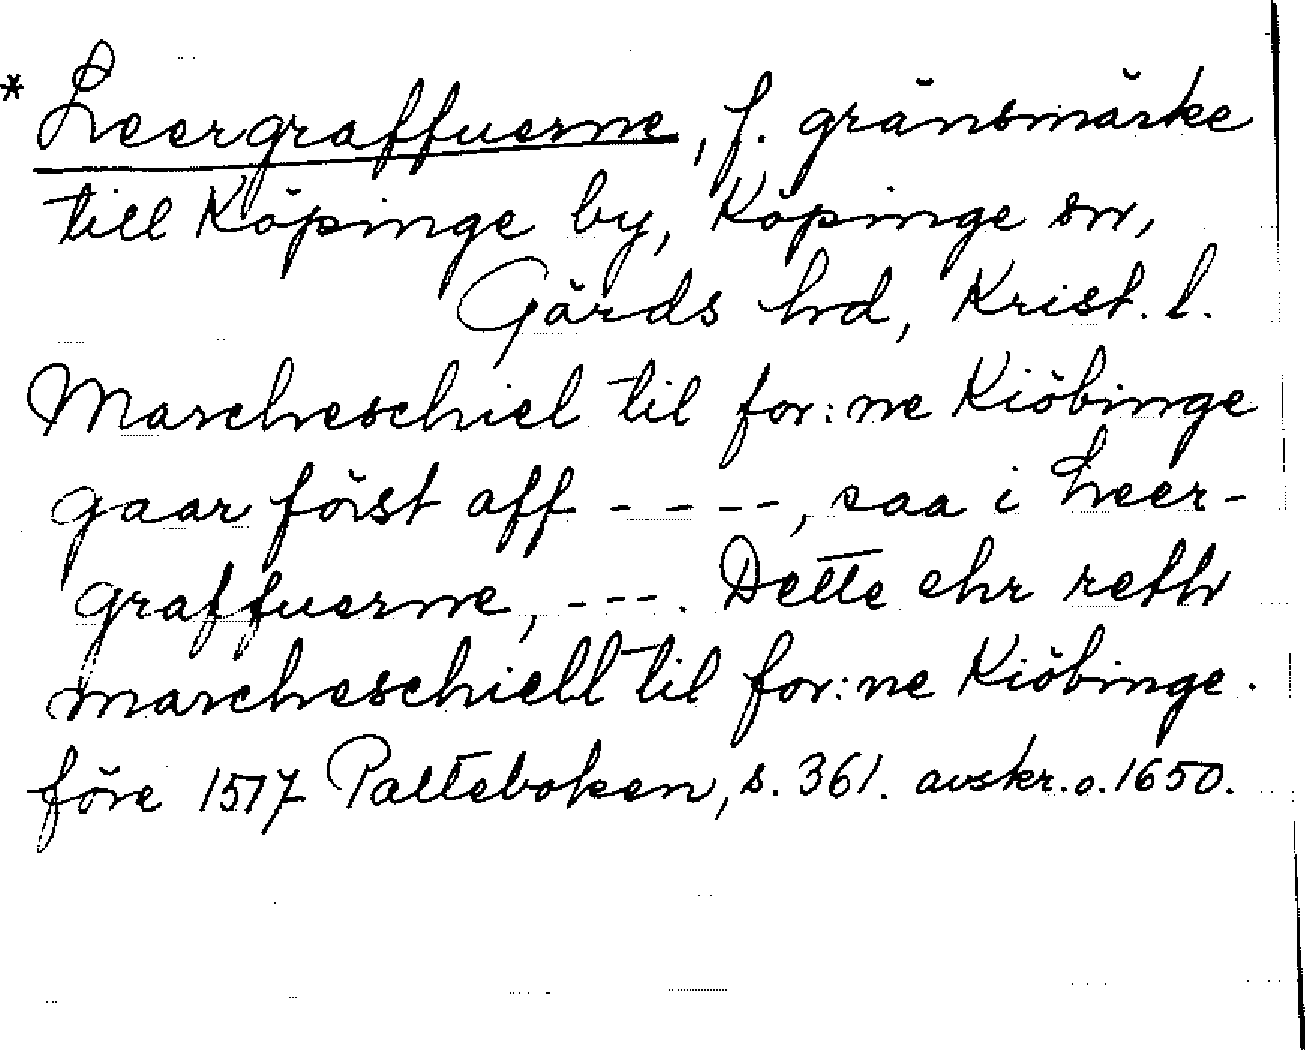 * Leergraffuerne, f. gränsmärke
till Köpinge by, Köpinge sn,
Gärds hd, Krist. l.
Marcheschiel til for:ne Kiöbinge
gaar först aff - - - -, saa i Leer-
graffuerne, - - -. Dette ehr reth
marcheschiell til for:ne Kiöbinge.
före 1517 Palteboken, s. 361. avskr. o. 1650.